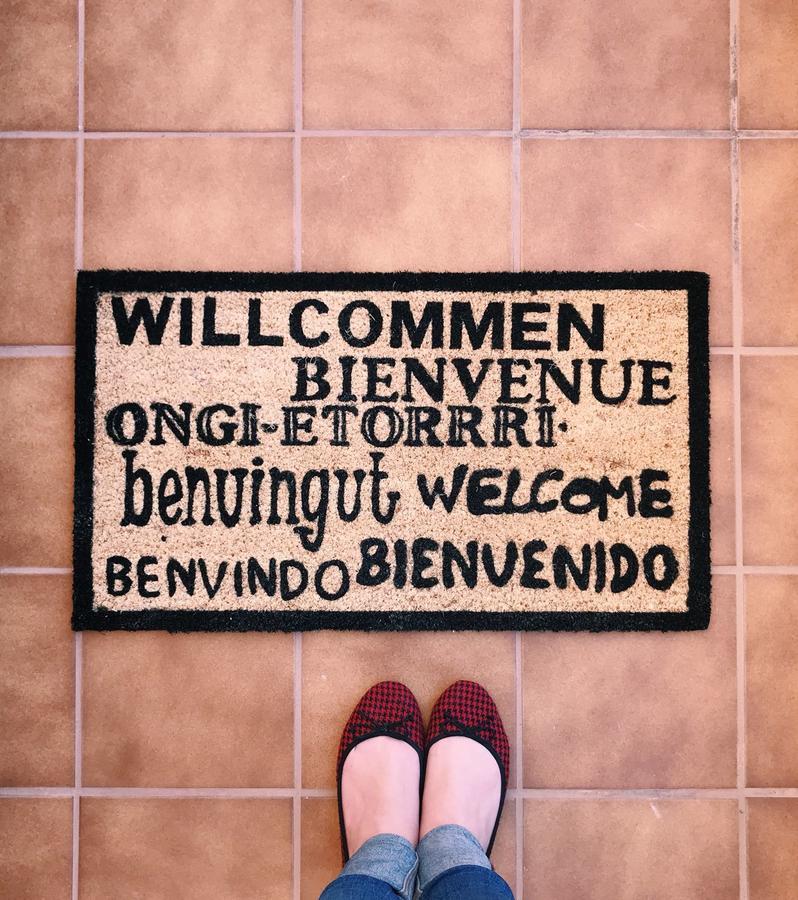 WILLCOMMEN
BIENVENUE
ONGI-ETORRRI·
benvingut WELCOME
BENVINDO BIENVENIDO